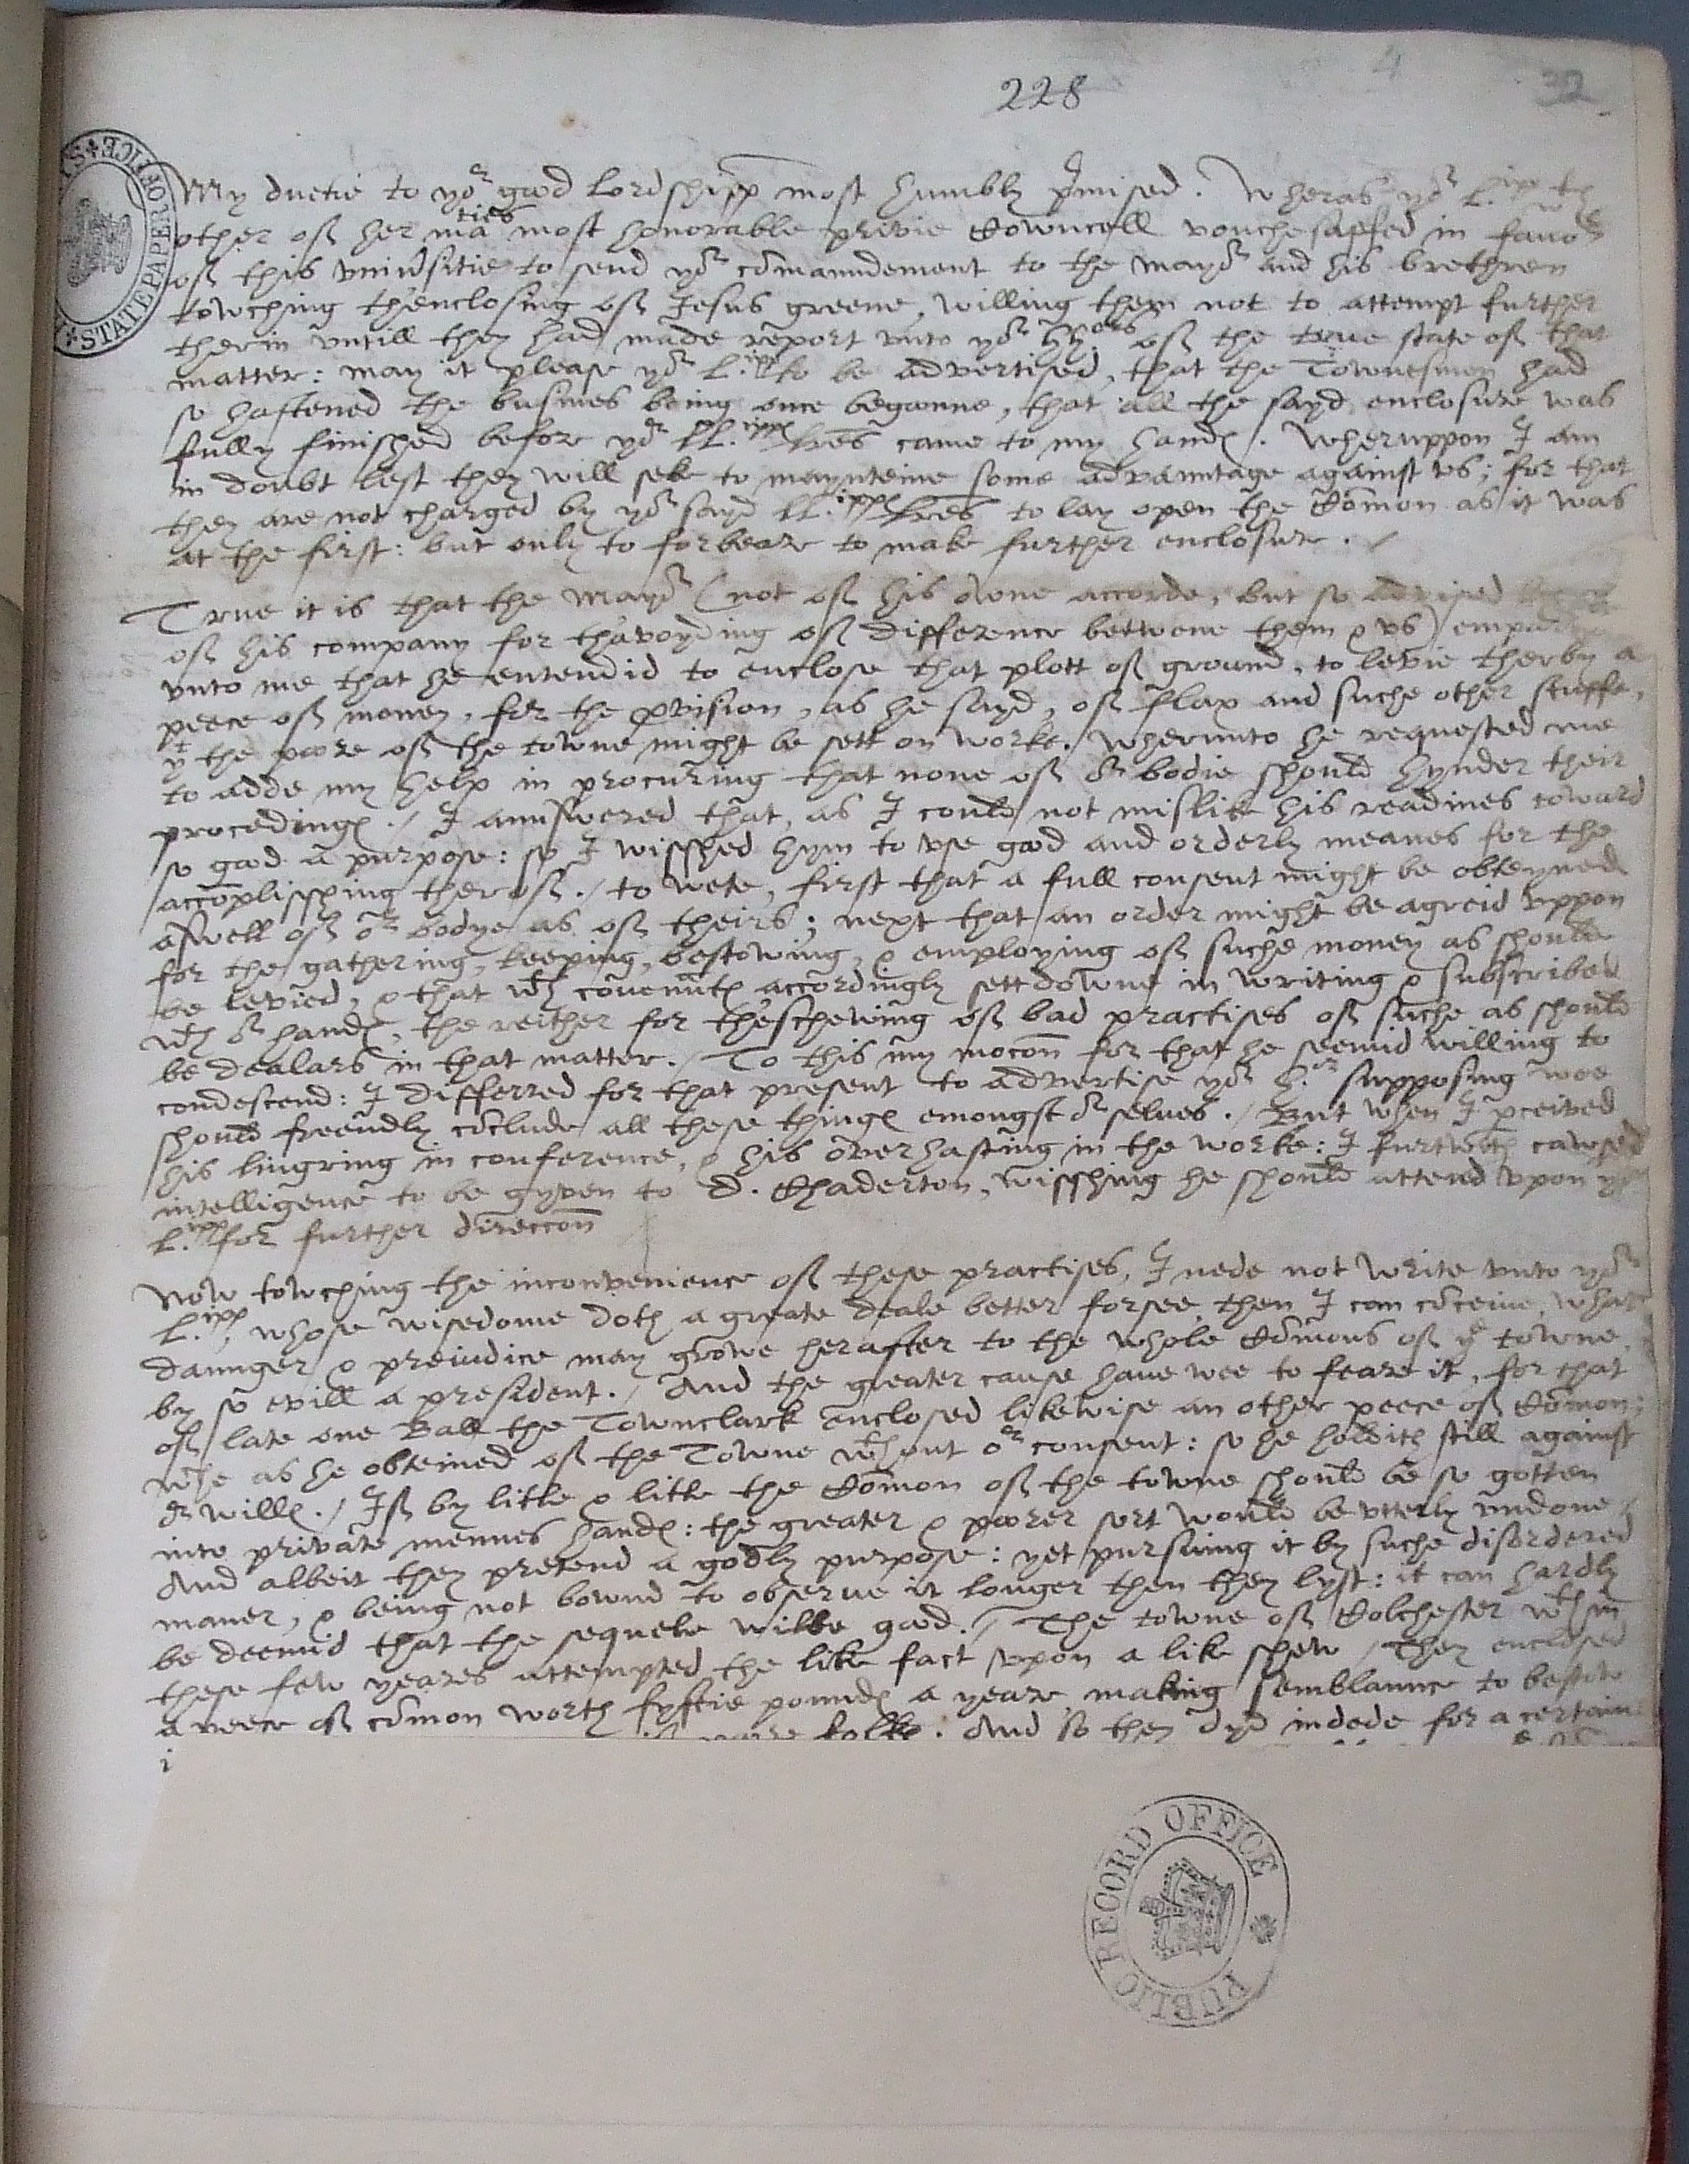 228
4
32
STATE PAPER OFFICE
My duetie to yor good Lordshipp most humbly p'mised. Wheras yor L.ipp wth
other of her maties most honorable privie Cowncell vouchesaffed in favor
of this vniu'sitie to send yor com̄aundement to the mayor and his brethren
towching th'enclosing of Jesus greene, willing them not to attempt further
therin vntill they had made report vnto yor HH.ors of the true state of that
matter: may it please yor L.ipp to be advertised, that the Townesmen had
so hastened the busines being once begonne, that all the sayd enclosure was
fully finisshed before yor LL.ipps lr̄es came to my hands. Wheruppon I am
in doubt lest they will seke to maynteine some advauntage against vs; for that
they are not charged by yor sayd LL.ipps lr̄es to lay open the Com̄on as it was
at the first: but only to forbeare to make further enclosure.
True it is that the Mayor (not of his owne accorde, but so advised
of his company for th'avoyding of difference betwene them & vs)
vnto me that he entendid to enclose that plott of ground, to levie therby a
peece of money, for the p'vision, as he sayd, of flax and suche other stuffe,
yt the poore of the towne might be sett on worke. Wherunto he requested me
to adde my help in procuring that none of or bodie should hynder their
procedings./ I aunswered that, as I could not mislike his readines toward
so good a purpose: so I wisshed hym to vse good and orderly meanes for the
accōplisshing therof./ to wete, first that a full consent might be obteyned
aswell of or bodye as of theirs; next that an order might be agreid vppon
for the gathering, keeping, bestowing, & employing of suche money as should
be levied, & that wth covenn̄ts accordingly sett downe in writing & subscribed
wth or hands, the reither for th'eschewing of bad practises of suche as should
be dealars in that matter./ To this my mocōn for that he seemid willing to
condescend: I differred for that present to advertise yor H.or supposing wee
should freendly cōclude all these things emongst or selves./ But when I p'ceived
his lingring in conference, & his overhasting in the worke: I furtwth cawsed
intelligence to be gyven to D. Chaderton, wisshing he should attend vpon yor
L.ipp for further direccōn
Now towching the inconvenience of these practises, I nede not write vnto yor
L.ipp, whose wisedome doth a greate deale better forsee then I can cōceive, what
daunger & preiudice may growe herafter to the whole Com̄ons of ye towne
by so evill a president./ And the greater cause have wee to feare it, for that
of late one Ball the Townclark enclosed likewise an other peece of Com̄on;
wche as he obteined of the Towne wthout or consent: so he holdith still against
or wills./ If by litle & litle the Com̄on of the towne should be so gotten
into private mennes hands: the greater & poorer sort would be vtterly vndone.
And albeit they pretend a godly purpose: yet pursuing it by suche disordered
maner, & being not bownd to observe it longer then they lyst: it can hardly
be deemid that the sequele wilbe good./ The towne of Colchester wthin
these few yeares attempted the like fact vpon a like shew/ They enclosed
a peece of com̄on worth fyftie pounds a yeare, making semblaunce to bestow
poore folke. And so they dyd indede for a certain
PUBLIC RECORD OFFICE